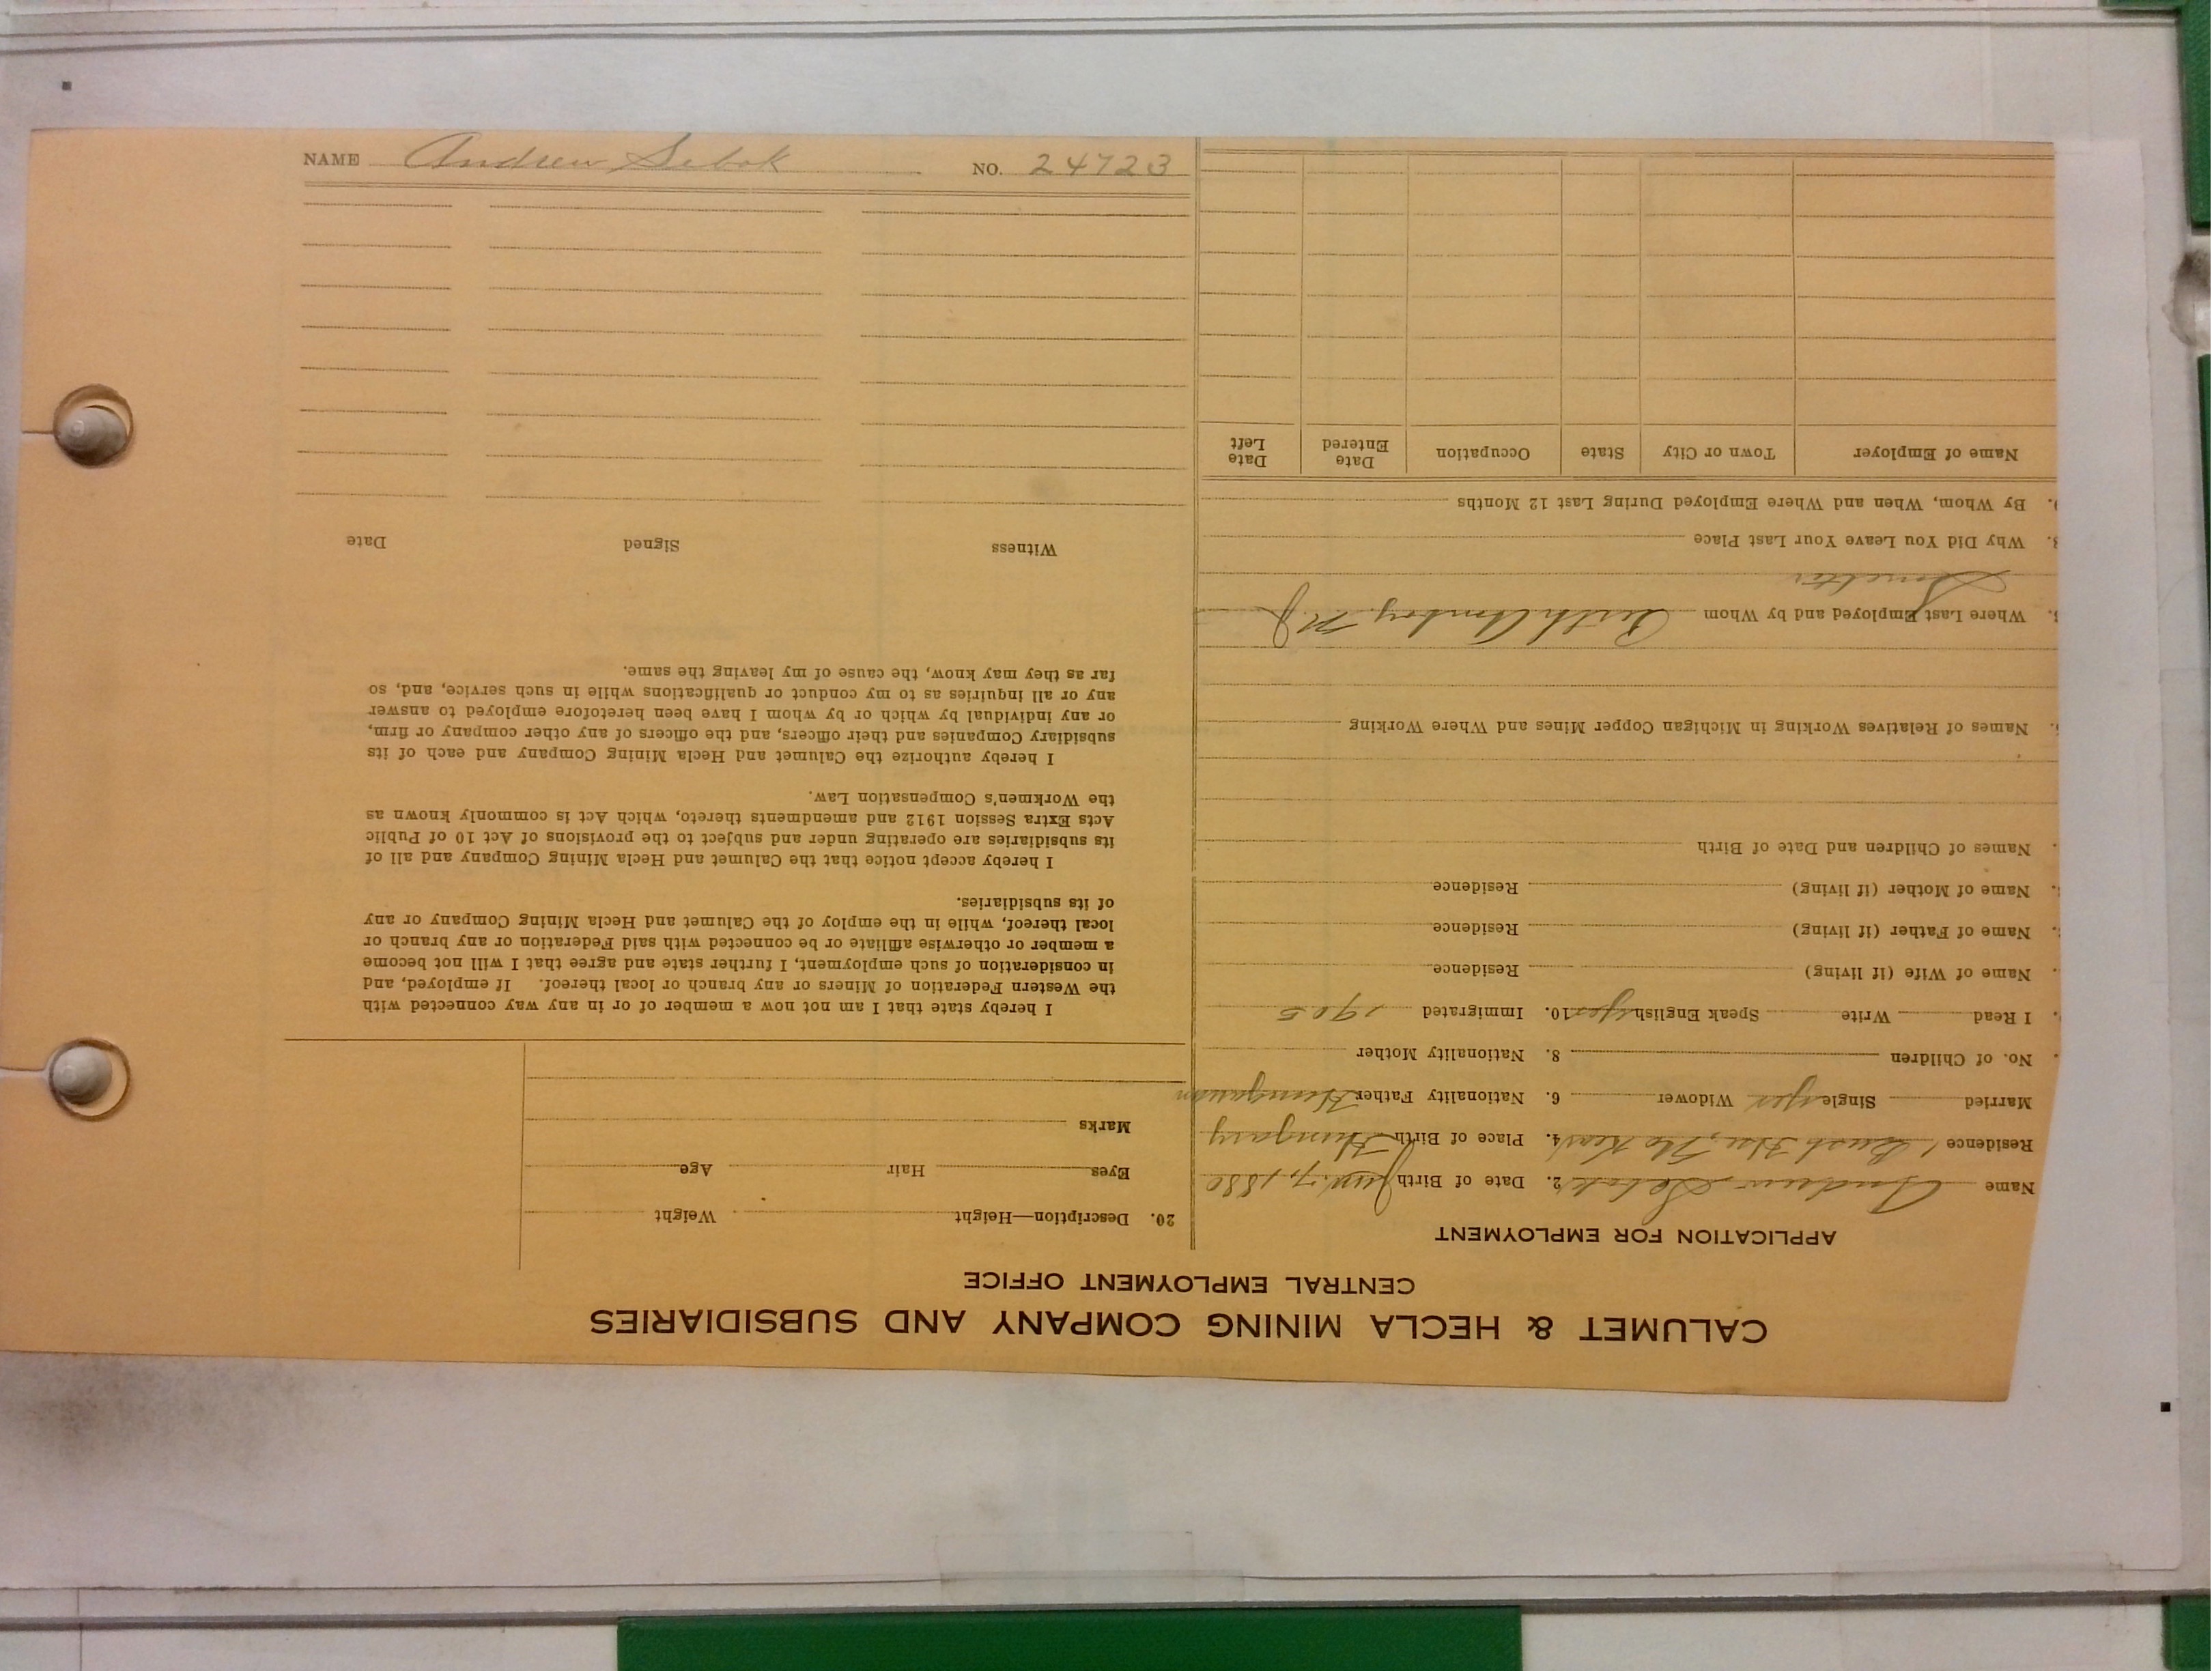 CALUMET & HECLA MINING COMPANY AND SUBSIDIARIES
CENTRAL EMPLOYMENT OFFICE
APPLICATION FOR EMPLOYMENT
Name Andrew Sebok 2. Date of Birth Jun. 7, 1880
Residence 4. Place of Birth Hungary
Married Single yes Widower 6. Nationality Father Hungarian
No. of Children 8. Nationality Mother
I Read Write Speak English yes 10. Immigrated 1905
Name of Wife (if living) Residence
Name of Father (if living) Residence
Name of Mother (if living) Residence
Names of Children and Date of Birth
Names of Relatives Working in Michigan Copper Mines and Where Working
Where Last Employed and by Whom Perth Amboy. N J
Smelter
Why Did You Leave Your Last Place
By Whom, When and Where Employed During Last 12 Months
Name of Employer Town or City State Occupation Date Entered Date Left
20. Description—Height Weight
Eyes Hair Age
Marks
I hereby state that I am not now a member of or in any way connected with
the Western Federation of Miners or any branch or local thereof. If employed, and
in consideration of such employment, I further state and agree that I will not become
a member or otherwise affiliate or be connected with said Federation or any branch or
local thereof, while in the employ of the Calumet and Hecla Mining Company or any
of its subsidiaries.
I hereby accept notice that the Calumet and Hecla Mining Company and all of
its subsidiaries are operating under and subject to the provisions of Act 10 of Public
Acts Extra Session 1912 and amendments thereto, which Act is commonly known as
the Workmen's Compensation Law.
I hereby authorize the Calumet and Hecla Mining Company and each of its
subsidiary Companies and their officers, and the officers of any other company or firm,
or any individual by which or by whom I have been heretofore employed to answer
any or all inquiries as to my conduct or qualifications while in such service, and, so
far as they may know, the cause of my leaving the same.
Witness Signed Date
NAME Andrew Sebok NO. 24723